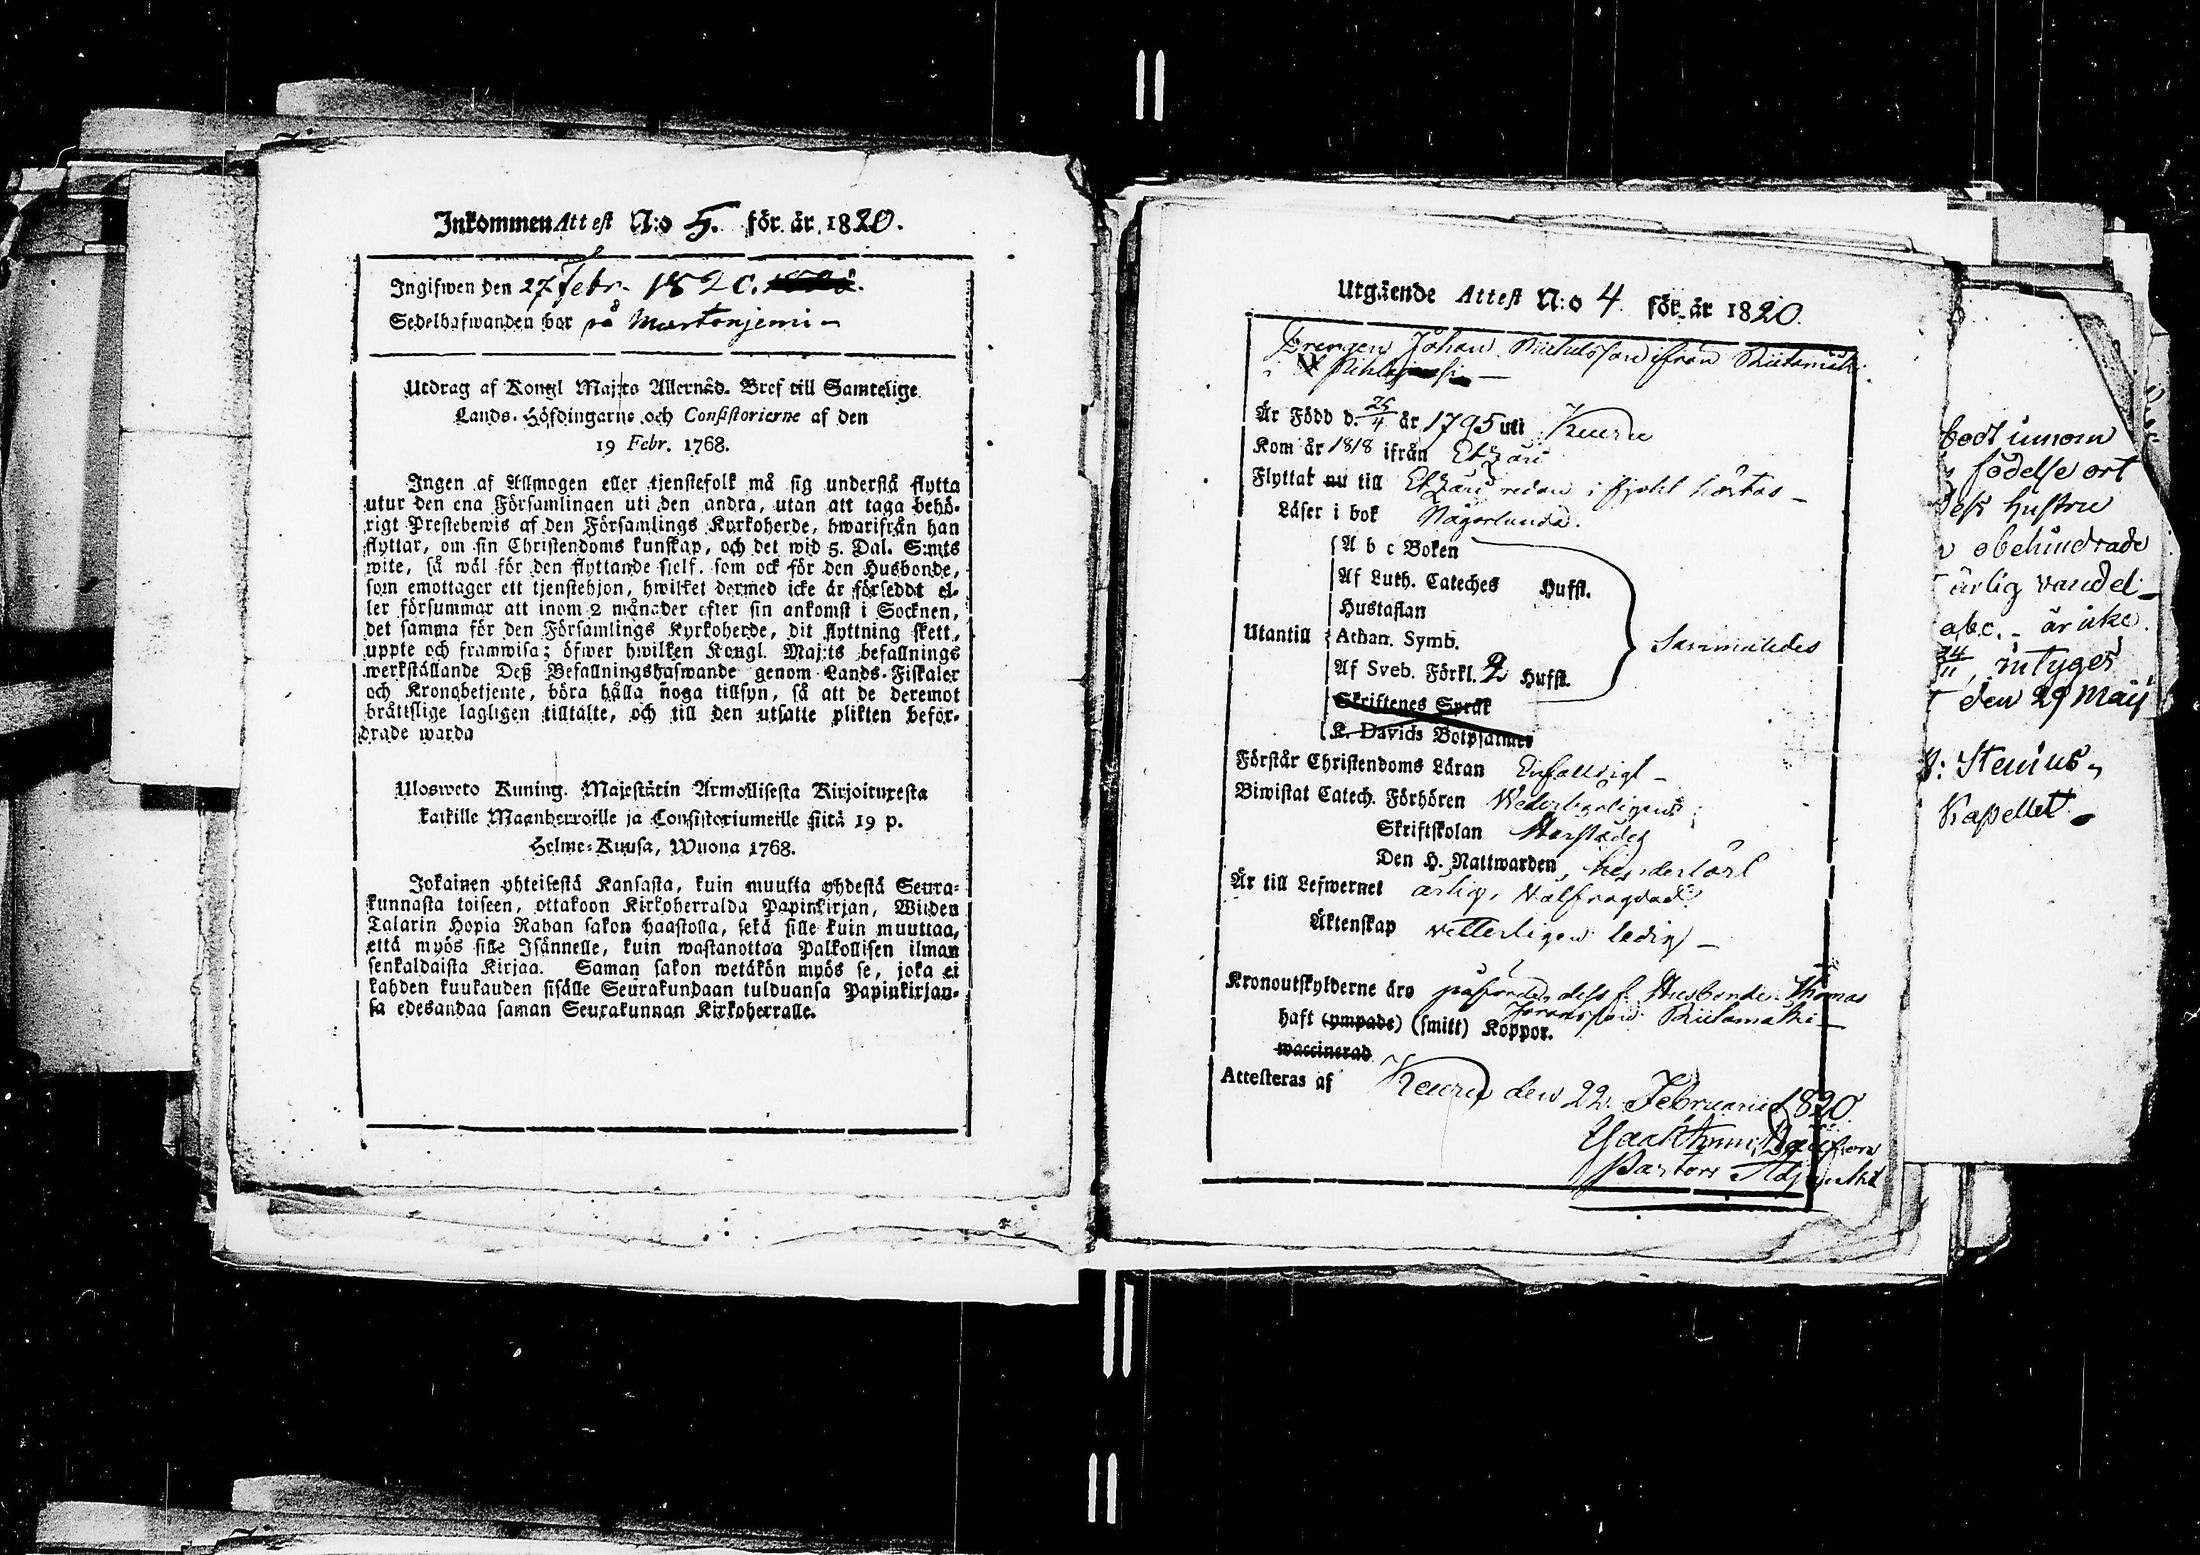 Inkommen Attest N:o 5. för år 1820.
Ingifwen den 27 Febr. 1820.
Sedelhafwanden bor på Martonjemi
Utdrag af Kongl Maj:ts Allernåd. Bref till Samtelige
Lands-Höfdingarne och Consistorierne af den
19 Febr. 1768.
Ingen af Allmogen eller tjenstefolk må sig understå flytta
utur den ena Församlingen uti den andra, utan att taga behö-
rigt Prestebewis af den Församlings Kyrkoherde, hwarifrån han
flyttar, om sin Christendoms kunskap, och det wid 5. Dal. S:mts
wite, så wäl för den flyttande sielf, som ock för den Husbonde,
som emottager ett tjenstehjon, hwilket dermed icke är förseddt el-
ler försummar att inom 2 månader efter sin ankomst i Socknen,
det samma för den Församlings Kyrkoherde, dit flyttning skett,
uppte och framwisa; öfwer hwilken Kongl. Maj:ts befallnings
werkställande Deß Befallningshafwande genom Lands-Fiskaler
och Kronobetjente, böra hålla noga tillsyn, så att de deremot
bråttslige lagligen tilltalte, och till den utsatte plikten beför-
drade warda
Ulosweto Kuning. Majestätin Armollisesta Kirjoituxesta
kaikille Maanherroille ja Consistoriumeille siitä 19 p.
Helme-Kuusa, Wuona 1768.
Jokainen yhteisestä Kansasta, kuin muutta yhdestä Seura-
kunnasta toiseen, ottakoon Kirkoherralda Papinkirjan, Wiiden
Talarin Hopia Rahan sakon haastolla, sekä sille kuin muuttaa,
että myös sille Isännelle, kuin wastanottaa Palkollisen ilman
senkaldaista Kirjaa. Saman sakon wetäkön myös se, joka ei
kahden kuukauden sisälle Seurakundaan tulduansa Papinkirjan-
sa edesandaa saman Seurakunnan Kirkoherralle.
Utgående Attest N:o 4 för år 1820.
Drengen Johan Michelsson ifrån Riitamäki
i Pihlaj
Är Född d. 25/4 år 1795 uti Keuru
Kom år 1818 ifrån Etzäri
Flyttat nu till Etzäri redan i fjohl höstas
Läser i bok Någorlunda.
A b c Boken
Af Luth. Cateches Hufst.
Hustaflan
Utantill Athan. Symb. Sammaledes
Af Sveb. Förkl. 2 Hufst.
Skriftenes Språk
K. Davids Botpsalmer
Förstår Christendoms Läran Enfaldigt
Biwistat Catech. Förhören Wederbörligen
Skriftskolan
Den H. Nattwarden
Är till Lefwernet ärlig, Wälfrägdad
Äktenskap vetterligen ledig
Kronoutskylderne äro påförde dess f. Husbonde Thomas
Johansson Riitamäki
haft (ympade) (smitt) Koppor.
waccinerad
Attesteras af Keuru den 22 Februarii 1820
Pastors Adjunkt
bodt innom
födelse ort
dess hustru
obehindrade
ärlig vandel
abc. är icke
24/11, intygar
den 29 Maij
J: Stenius
Kapellet